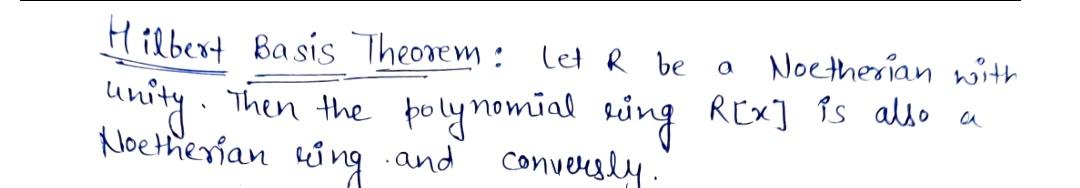 Hilbert Basis Theorem : Let R be a Noetherian with
unity. Then the polynomial ring R[x] is also a
Noetherian ring .and conversly.